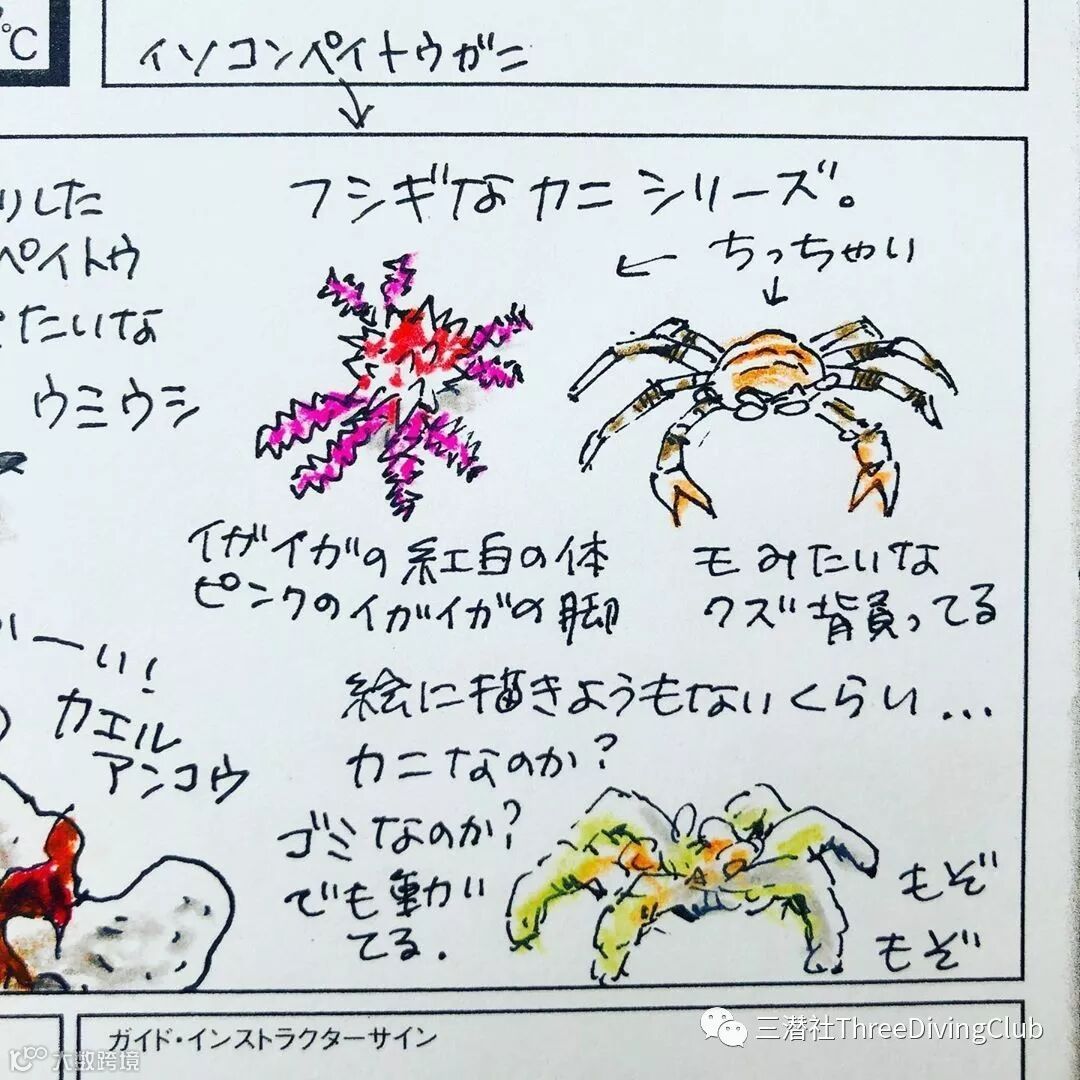 ℃
イソコンペイトウガニ
フシギなカニシリーズ。
りした
ペイトウ
たいな
ウミウシ
ちっちゃい
イガイガの紅白の体
ピンクのイガイガの脚
モみたいな
クズ背負ってる
ーい!
カエル
アンコウ
絵に描きようもないくらい...
カニなのか?
ゴミなのか?
でも動い
てる.
もぞ
もぞ
ガイド・インストラクターサイン
三潜社ThreeDivingClub
大数跨境